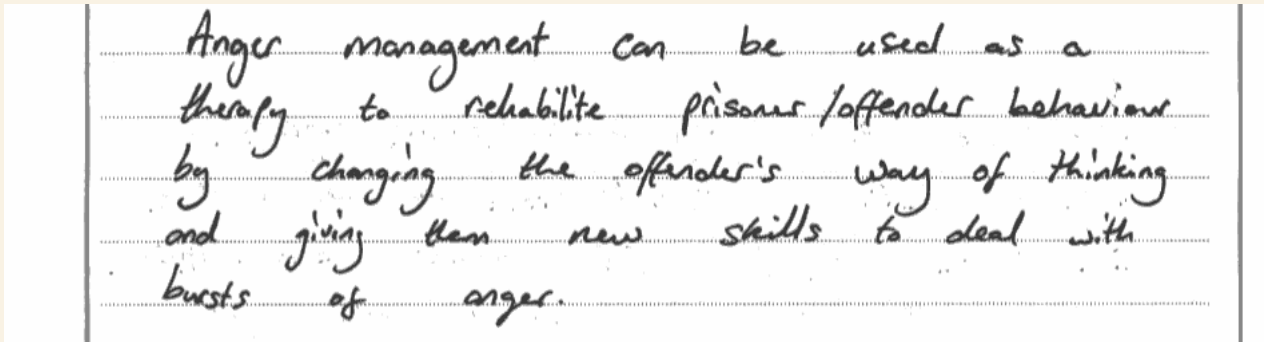 Anger management can be used as a
therapy to rehabilite prisoner /offender behaviour
by changing the offender's way of thinking
and giving them new skills to deal with
bursts of anger.